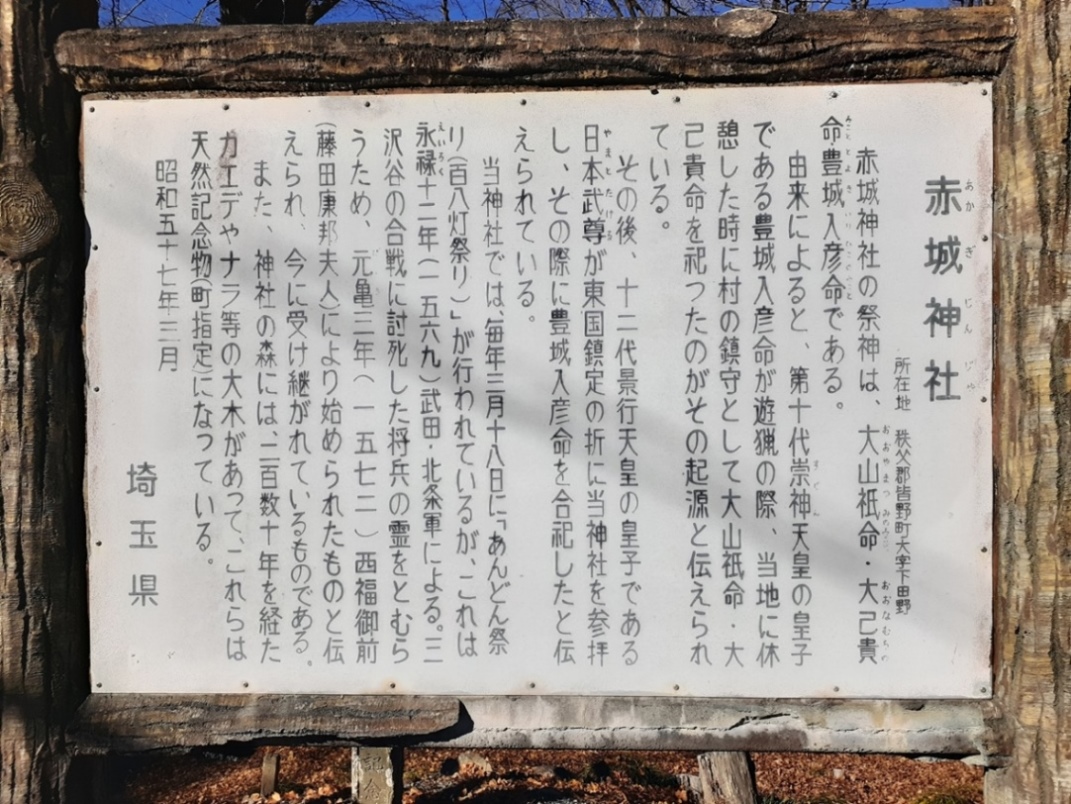 赤城神社
所在地 秩父郡皆野町大字下田野
赤城神社の祭神は、大山祇命・大己貴
命豊城入彦命である。
由来によると、第十代崇神天皇の皇子
である豊城入彦命が遊猟の際、当地に休
憩した時に村の鎮守として大山祇命・大
己貴命を祀ったのがその起源と伝えられ
ている。
その後、十二代景行天皇の皇子である
日本武尊が東国鎮定の折に当神社を参拝
し、その際に豊城入彦命を合祀したと伝
えられている。
当神社では、毎年三月十八日に「あんどん祭
り(百八灯祭り)」が行われているが、これは
永禄十二年(一五六九)武田・北条軍による。三
沢谷の合戦に討死した将兵の霊をとむら
うため、元亀三年(一五七二)西福御前
(藤田康邦夫人)により始められたものと伝
えられ、今に受け継がれているものである。
また、神社の森には、二百数十年を経た
カエデやナラ等の大木があって、これらは
天然記念物(町指定)になっている。
昭和五十七年三月
埼玉県